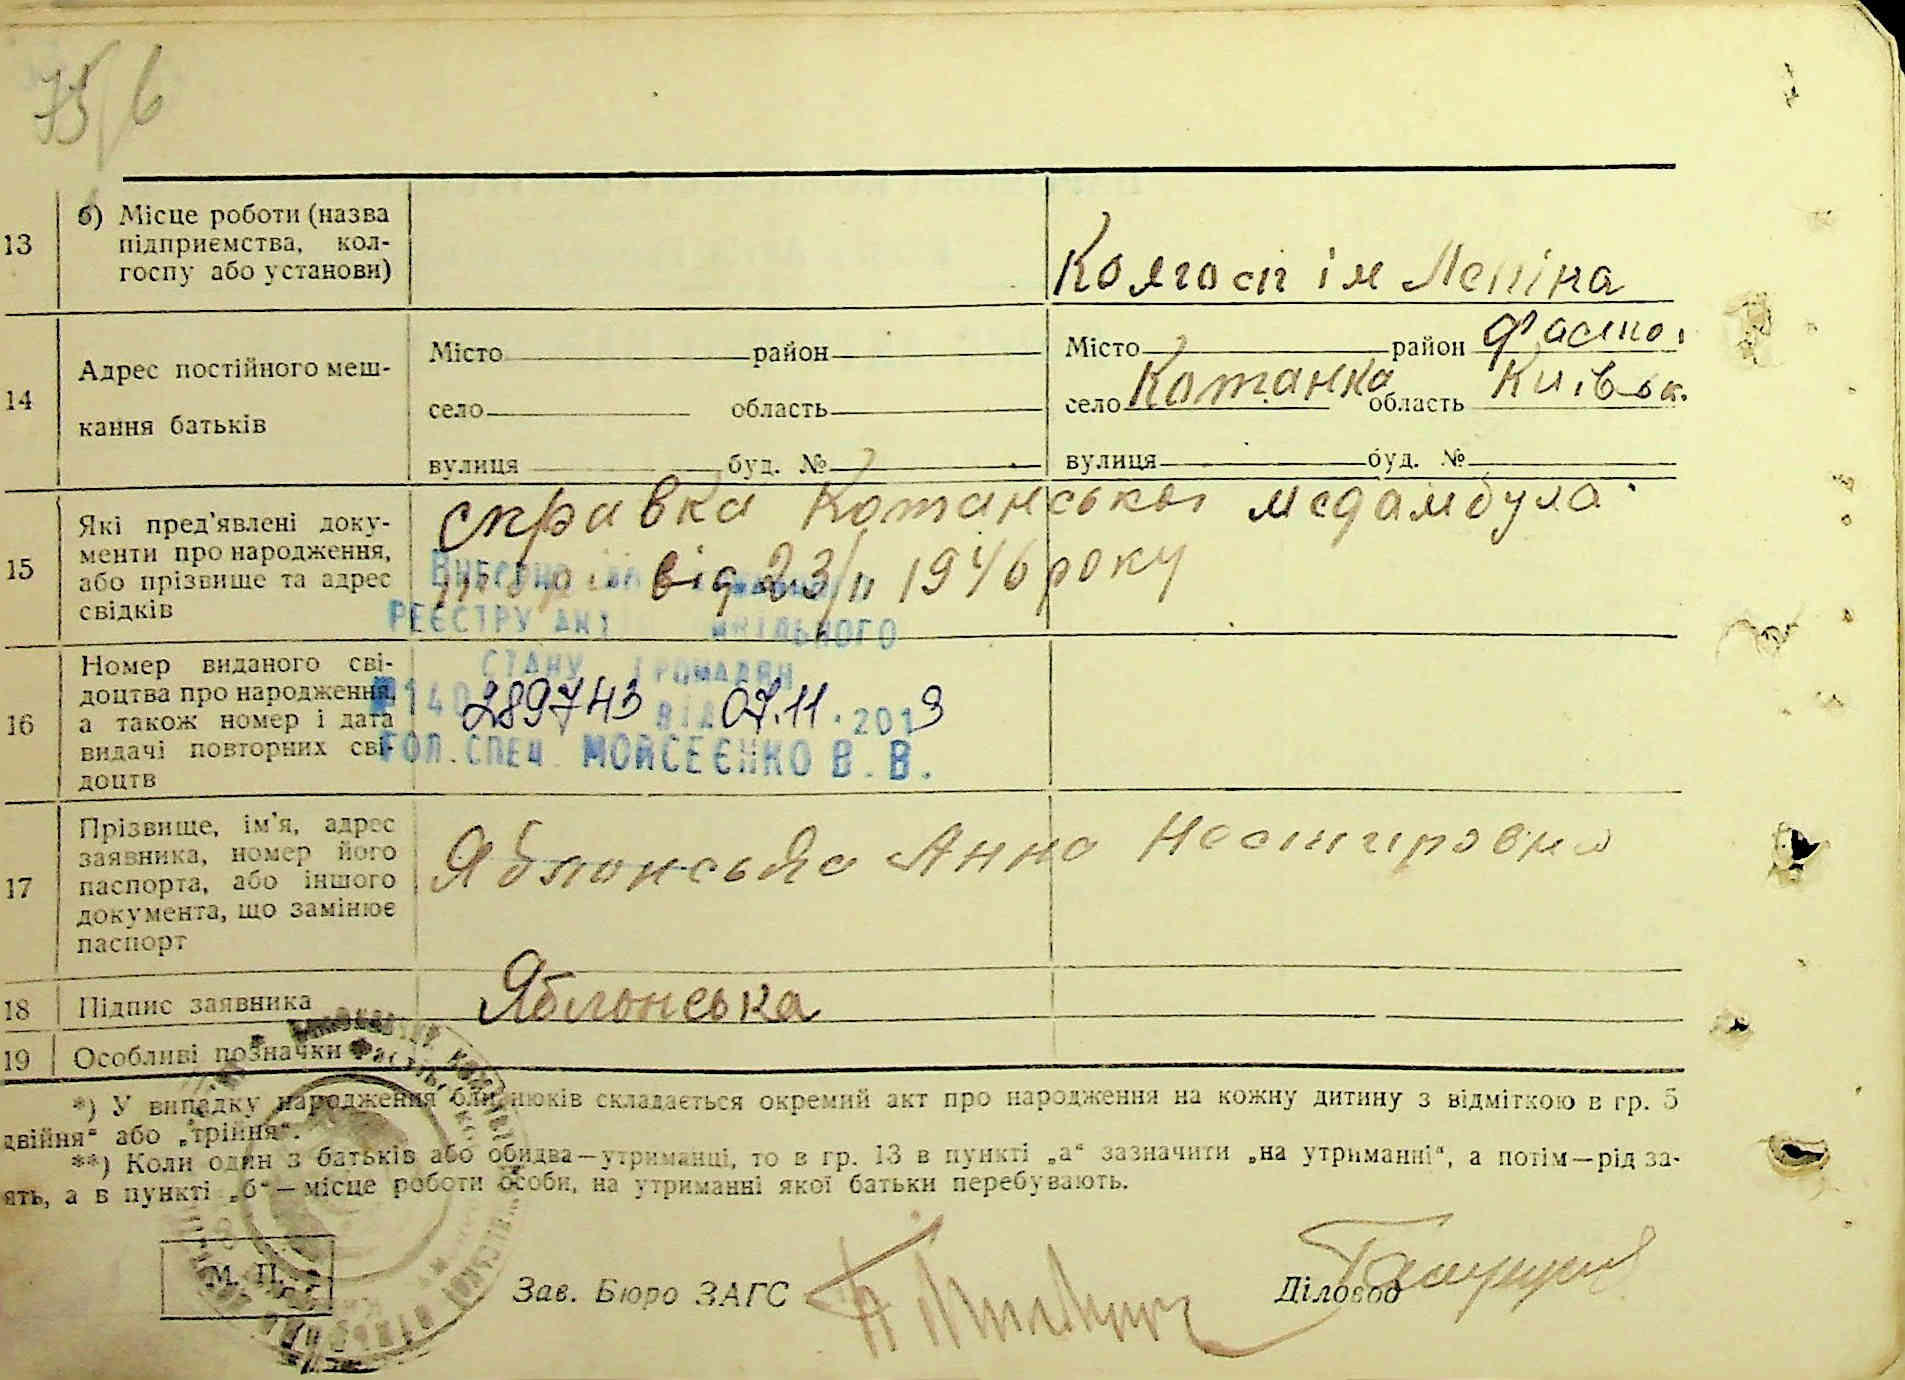 75/6
13 б) Місце роботи (назва
підприємства, кол-
госпу або установи)
Колгосп ім Леніна
14 Адрес постійного меш-
кання батьків
Місто район
село область
вулиця буд. №
Місто район Фасто.
село Котанка область Київськ.
вулиця буд. №
15 Які пред'явлені доку-
менти про народження,
або прізвище та адрес
свідків
справка Котанської медамбула
від 23/II 1946 року
РЕЄСТРУ АКТІВ ЦИВІЛЬНОГО
СТАНУ ГРОМАДЯН
16 Номер виданого сві-
доцтва про народження,
а також номер і дата
видачі повторних сві-
доцтв
289743 від 07.11.2019
ГОЛ.СПЕЦ. МОЙСЕЄНКО В.В.
17 Прізвище, ім'я, адрес
заявника, номер його
паспорта, або іншого
документа, що замінює
паспорт
Яблонська Анна Нестировна
18 Підпис заявника
Яблонська
19 Особливі позначки
*) У випадку народження близнюків складається окремий акт про народження на кожну дитину з відміткою в гр. 5
двійня“ або „трійня“.
**) Коли один з батьків або обидва—утриманці, то в гр. 13 в пункті „а“ зазначити „на утриманні“, а потім—рід за-
ять, а в пункті „б“—місце роботи особи, на утриманні якої батьки перебувають.
М. П.
Зав. Бюро ЗАГС
Діловод